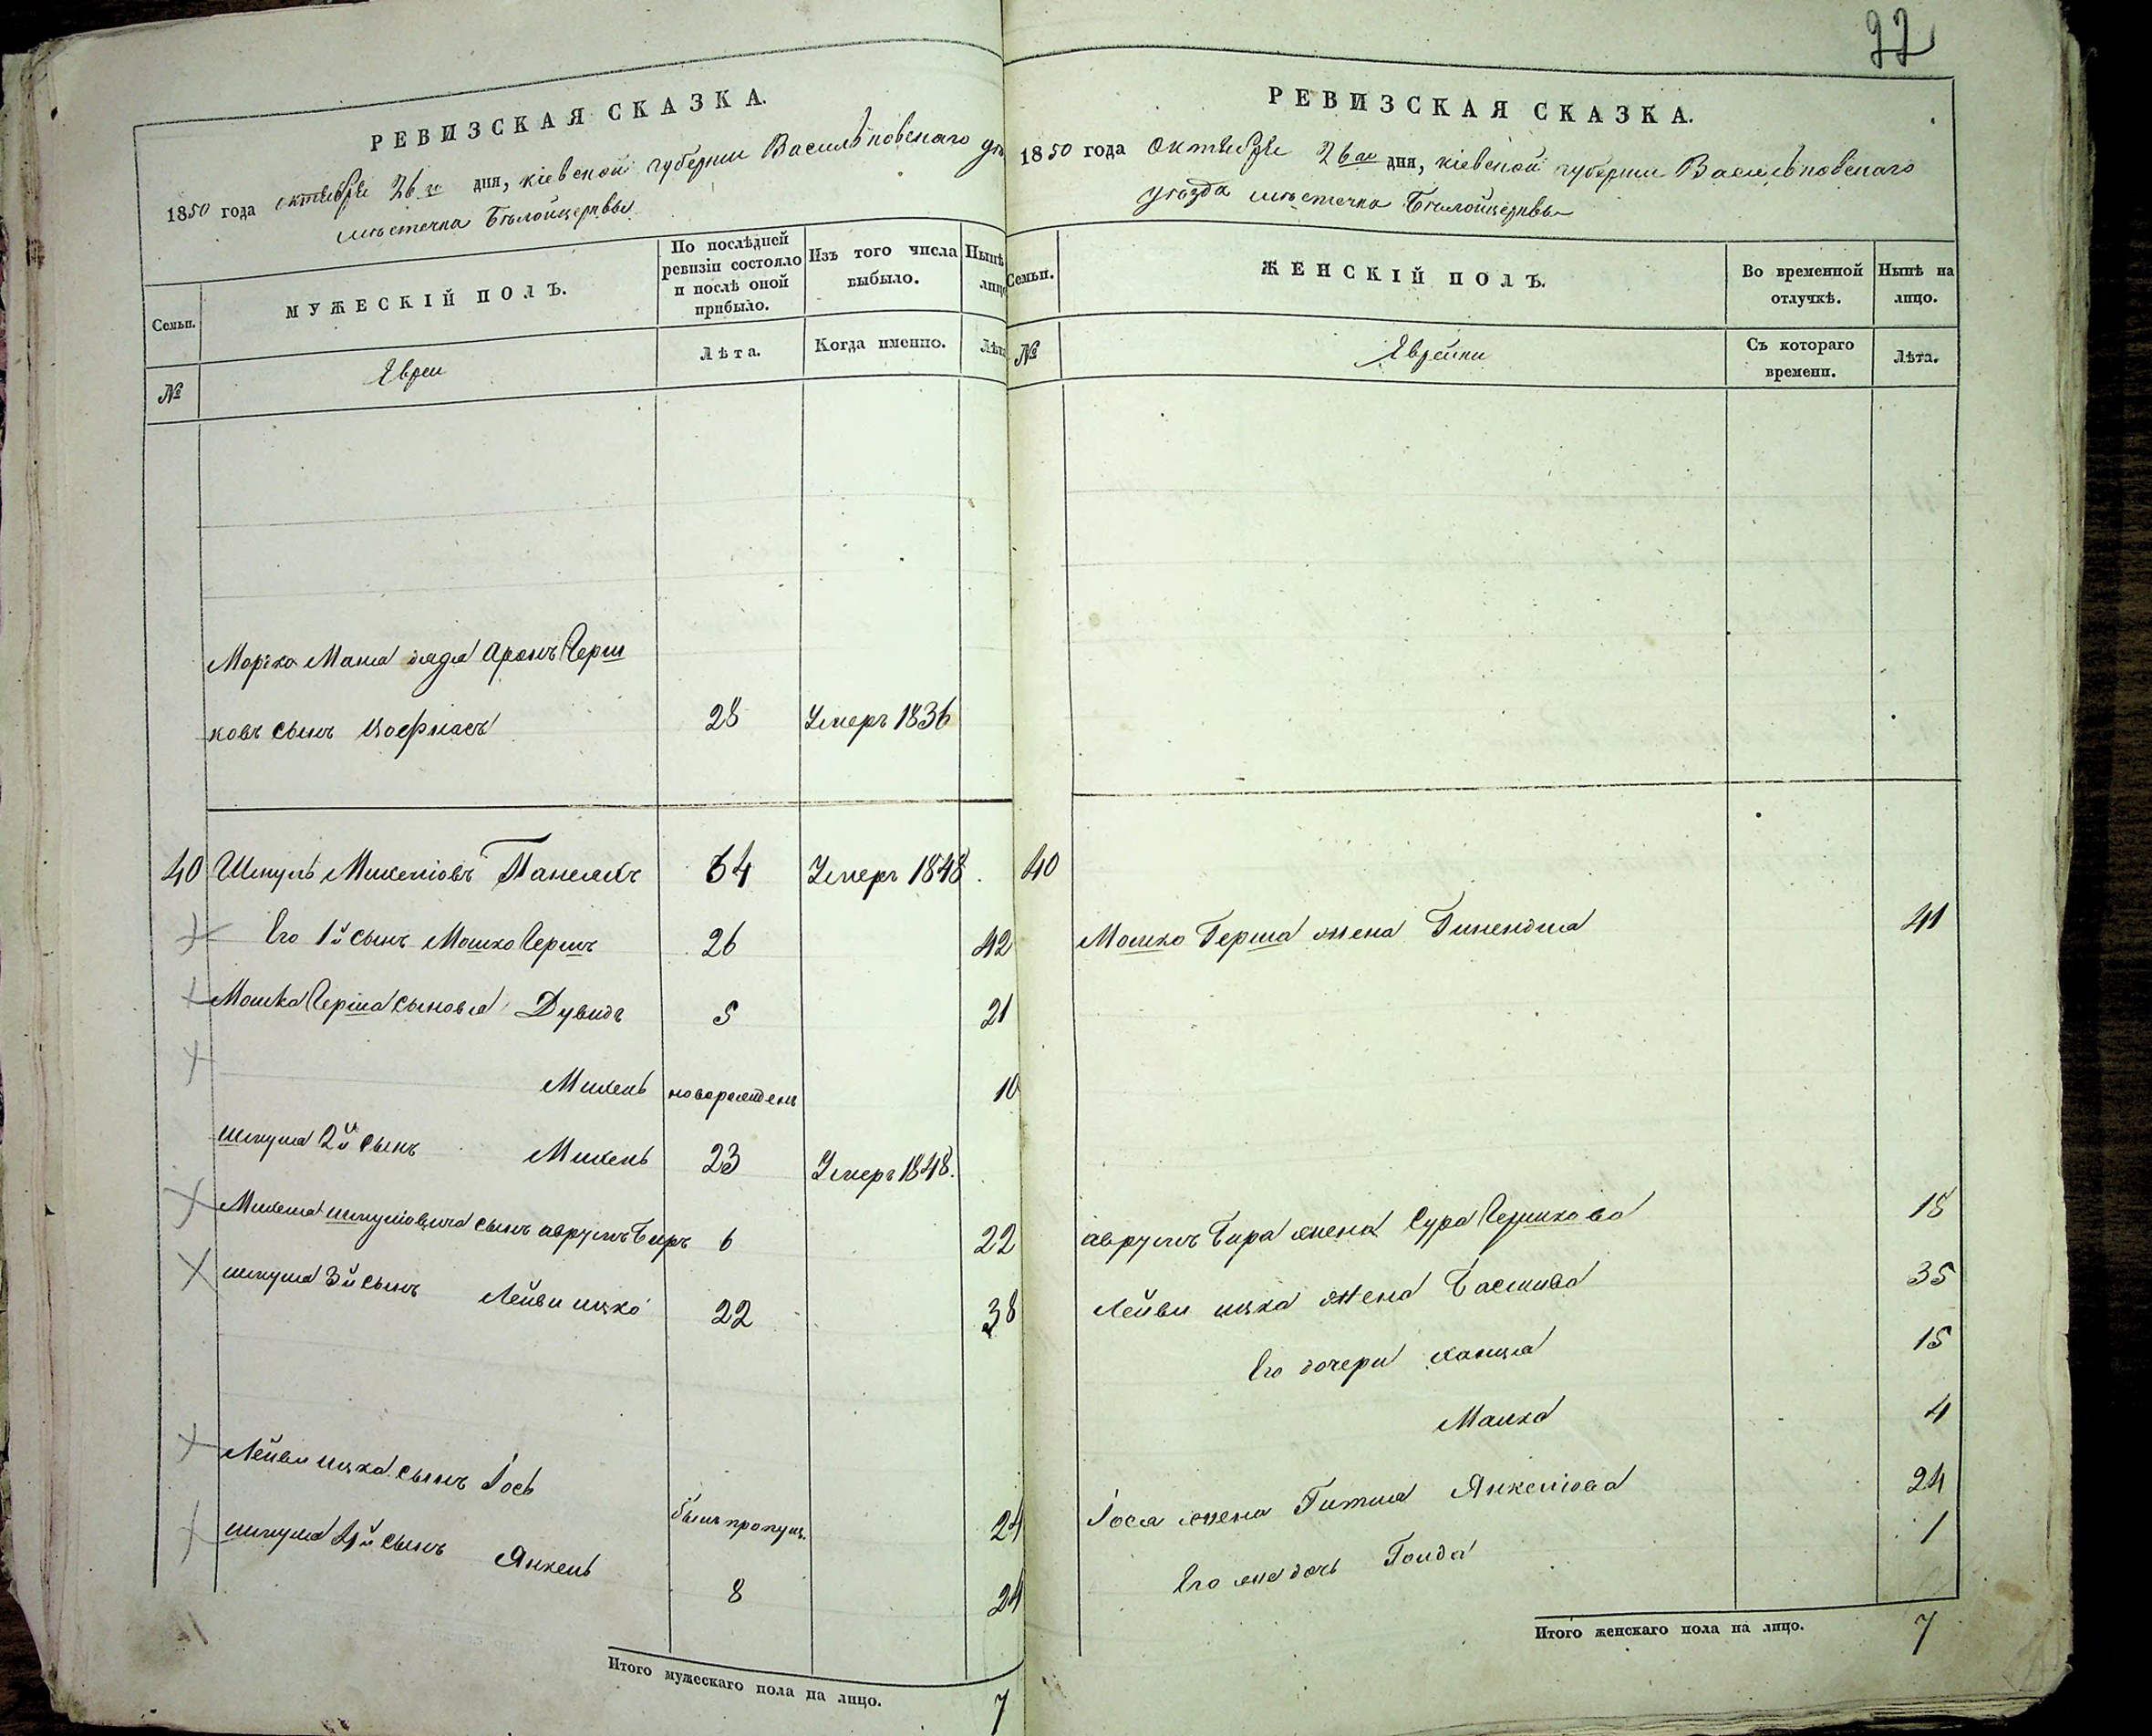 22
РЕВИЗСКАЯ СКАЗКА.
1850 года октября 26го дня, кіевской губерніи Васильковскаго
мѣстечка Бѣлойцеркви
Семьи.
МУЖЕСКІЙ ПОЛЪ.
По послѣдней ревизіи состояло и послѣ оной прибыло.
Изъ того числа выбыло.
Нынѣ
лицо
№
Евреи
Лѣта.
Когда именно.
Лѣта
Мошка дядя Аронъ Герш
ковъ сынъ 28 Умеръ 1836
40 Шмуль Михелiовъ 64 Умеръ 1848.
Его 1й сынъ Мошко Гершъ 26 42
Мошка Герша сыновья Дувидъ 5 21
Михель новорожденъ 10
шмуля 2й сынъ Михель 23 Умеръ 1848.
Михеля шмуліовича сынъ аврумъ Беръ 6 22
шмуля 3й сынъ Лейви ицко 22 38
Лейви ицка сынъ Іось былъ пропущ. 24
шмуля 4й сынъ Янкель 8 24
Итого мужескаго пола на лицо. 7
РЕВИЗСКАЯ СКАЗКА.
1850 года октября 26го дня, кіевской губерніи Васильковскаго
уѣзда мѣстечка Бѣлойцеркви
Семьи.
ЖЕНСКІЙ ПОЛЪ.
Во временной отлучкѣ.
Нынѣ на лицо.
№
Еврейки
Съ котораго времени.
Лѣта.
40
Мошко Герша жена 41
аврумъ Бера жена Сура Гершкова 18
Лейви ицка жена Басшива 35
Его дочери 15
Малка 4
Іося жена Гитля Янкеліова 24
Его же дочь Голда 1
Итого женскаго пола на лицо. 7